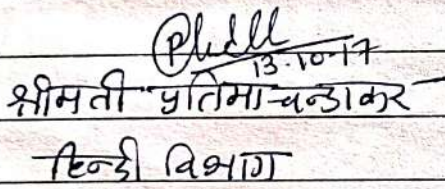 13.10.17
श्रीमती प्रतिमा चन्द्राकर
हिन्दी विभाग